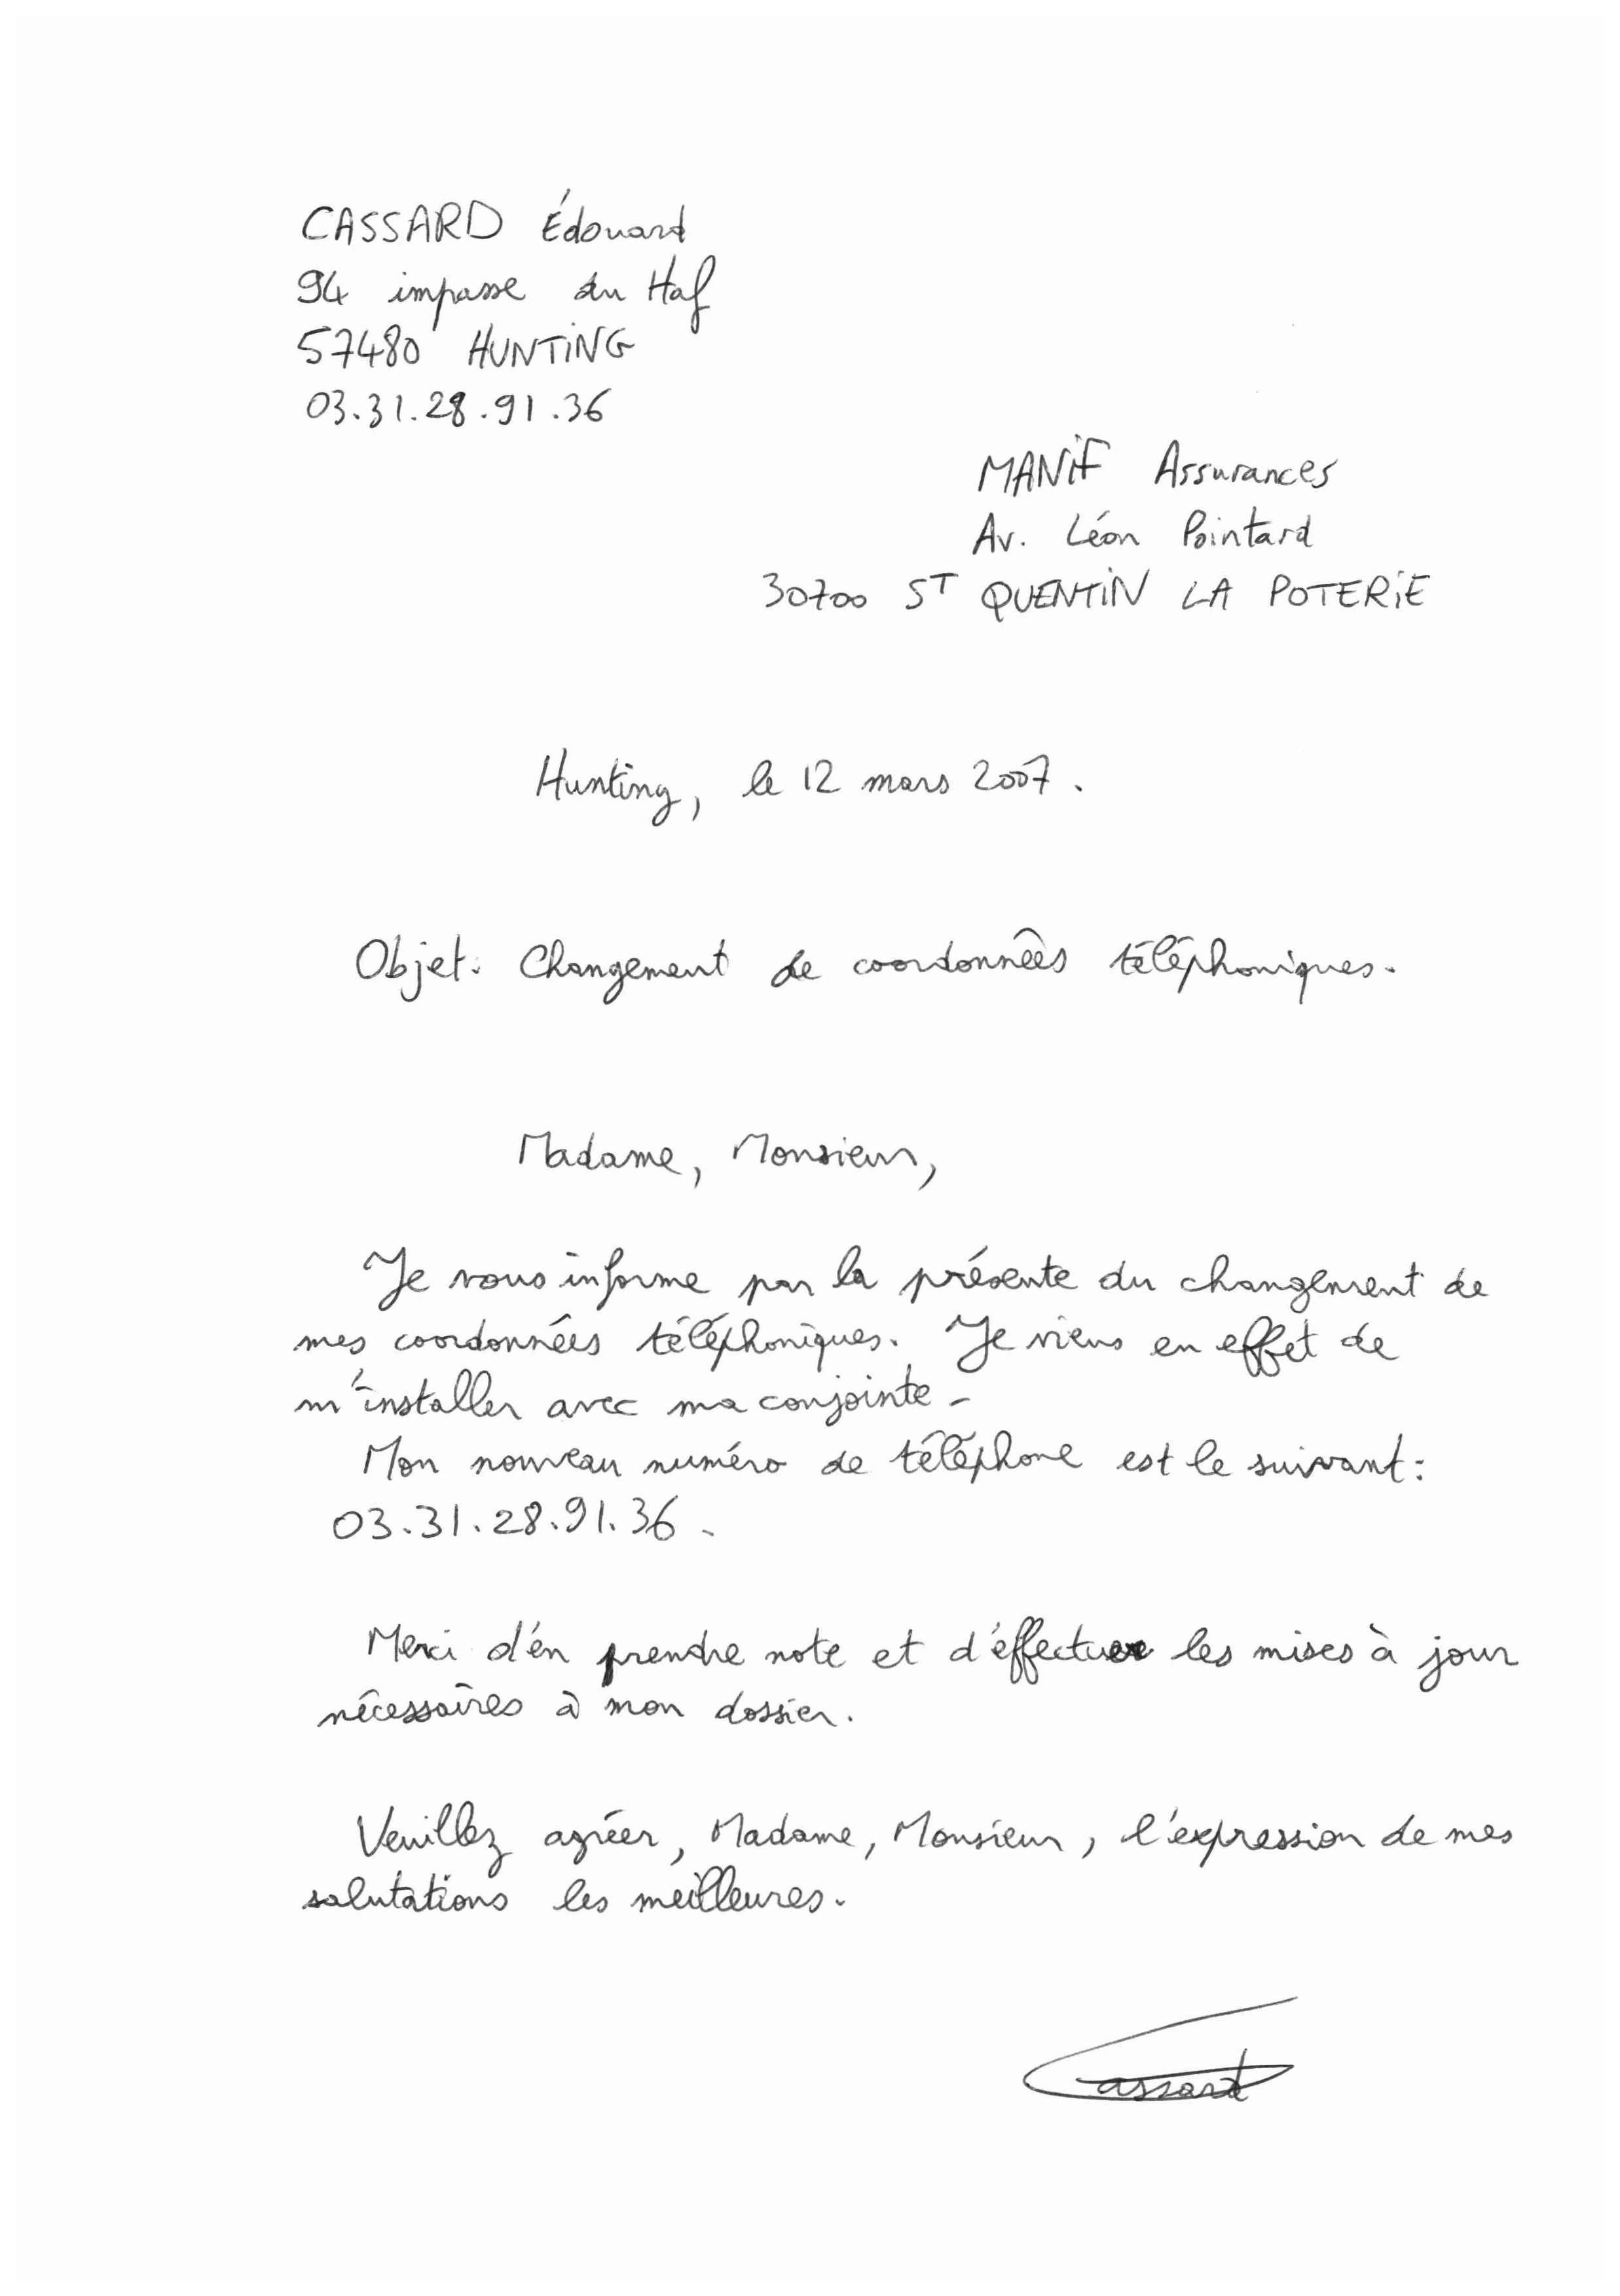 CASSARD Édouard
94 impasse du Haf
57480 HUNTING
03.31.28.91.36
MANIF Assurances
Av. Léon Pointard
30700 ST QUENTIN LA POTERIE
Hunting, le 12 mars 2007.
Objet: Changement de coordonnées téléphoniques.
Madame, Monsieur,
Je vous informe par la présente du changement de
mes coordonnées téléphoniques. Je viens en effet de
m'installer avec ma conjointe.
Mon nouveau numéro de téléphone est le suivant:
03.31.28.91.36.
Merci d'en prendre note et d'effectuer les mises à jour
nécessaires à mon dossier.
Veuillez agréer, Madame, Monsieur, l'expression de mes
salutations les meilleures.
Cassard